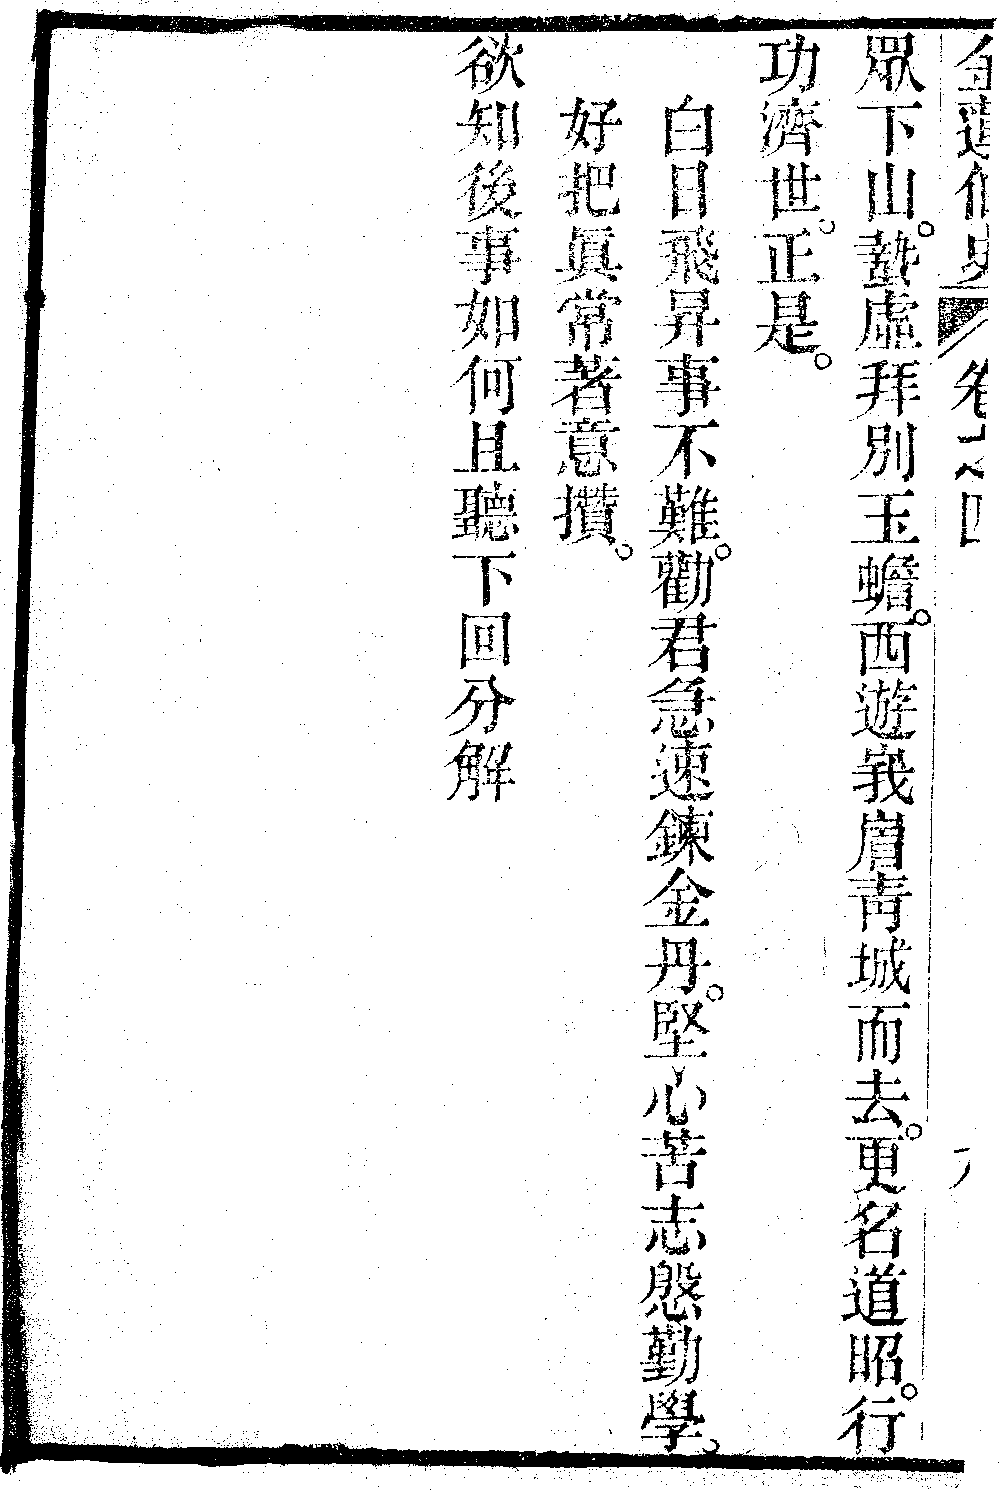 金蓮仙史　卷之四
眾下山。蟄虛拜別玉蟾。西遊峩眉靑城而去。更名道昭。行
功濟世。正是。
白日飛昇事不難。勸君急速鍊金丹。堅心苦志慇勤學。
好把眞常著意攢。
欲知後事如何且聽下回分解